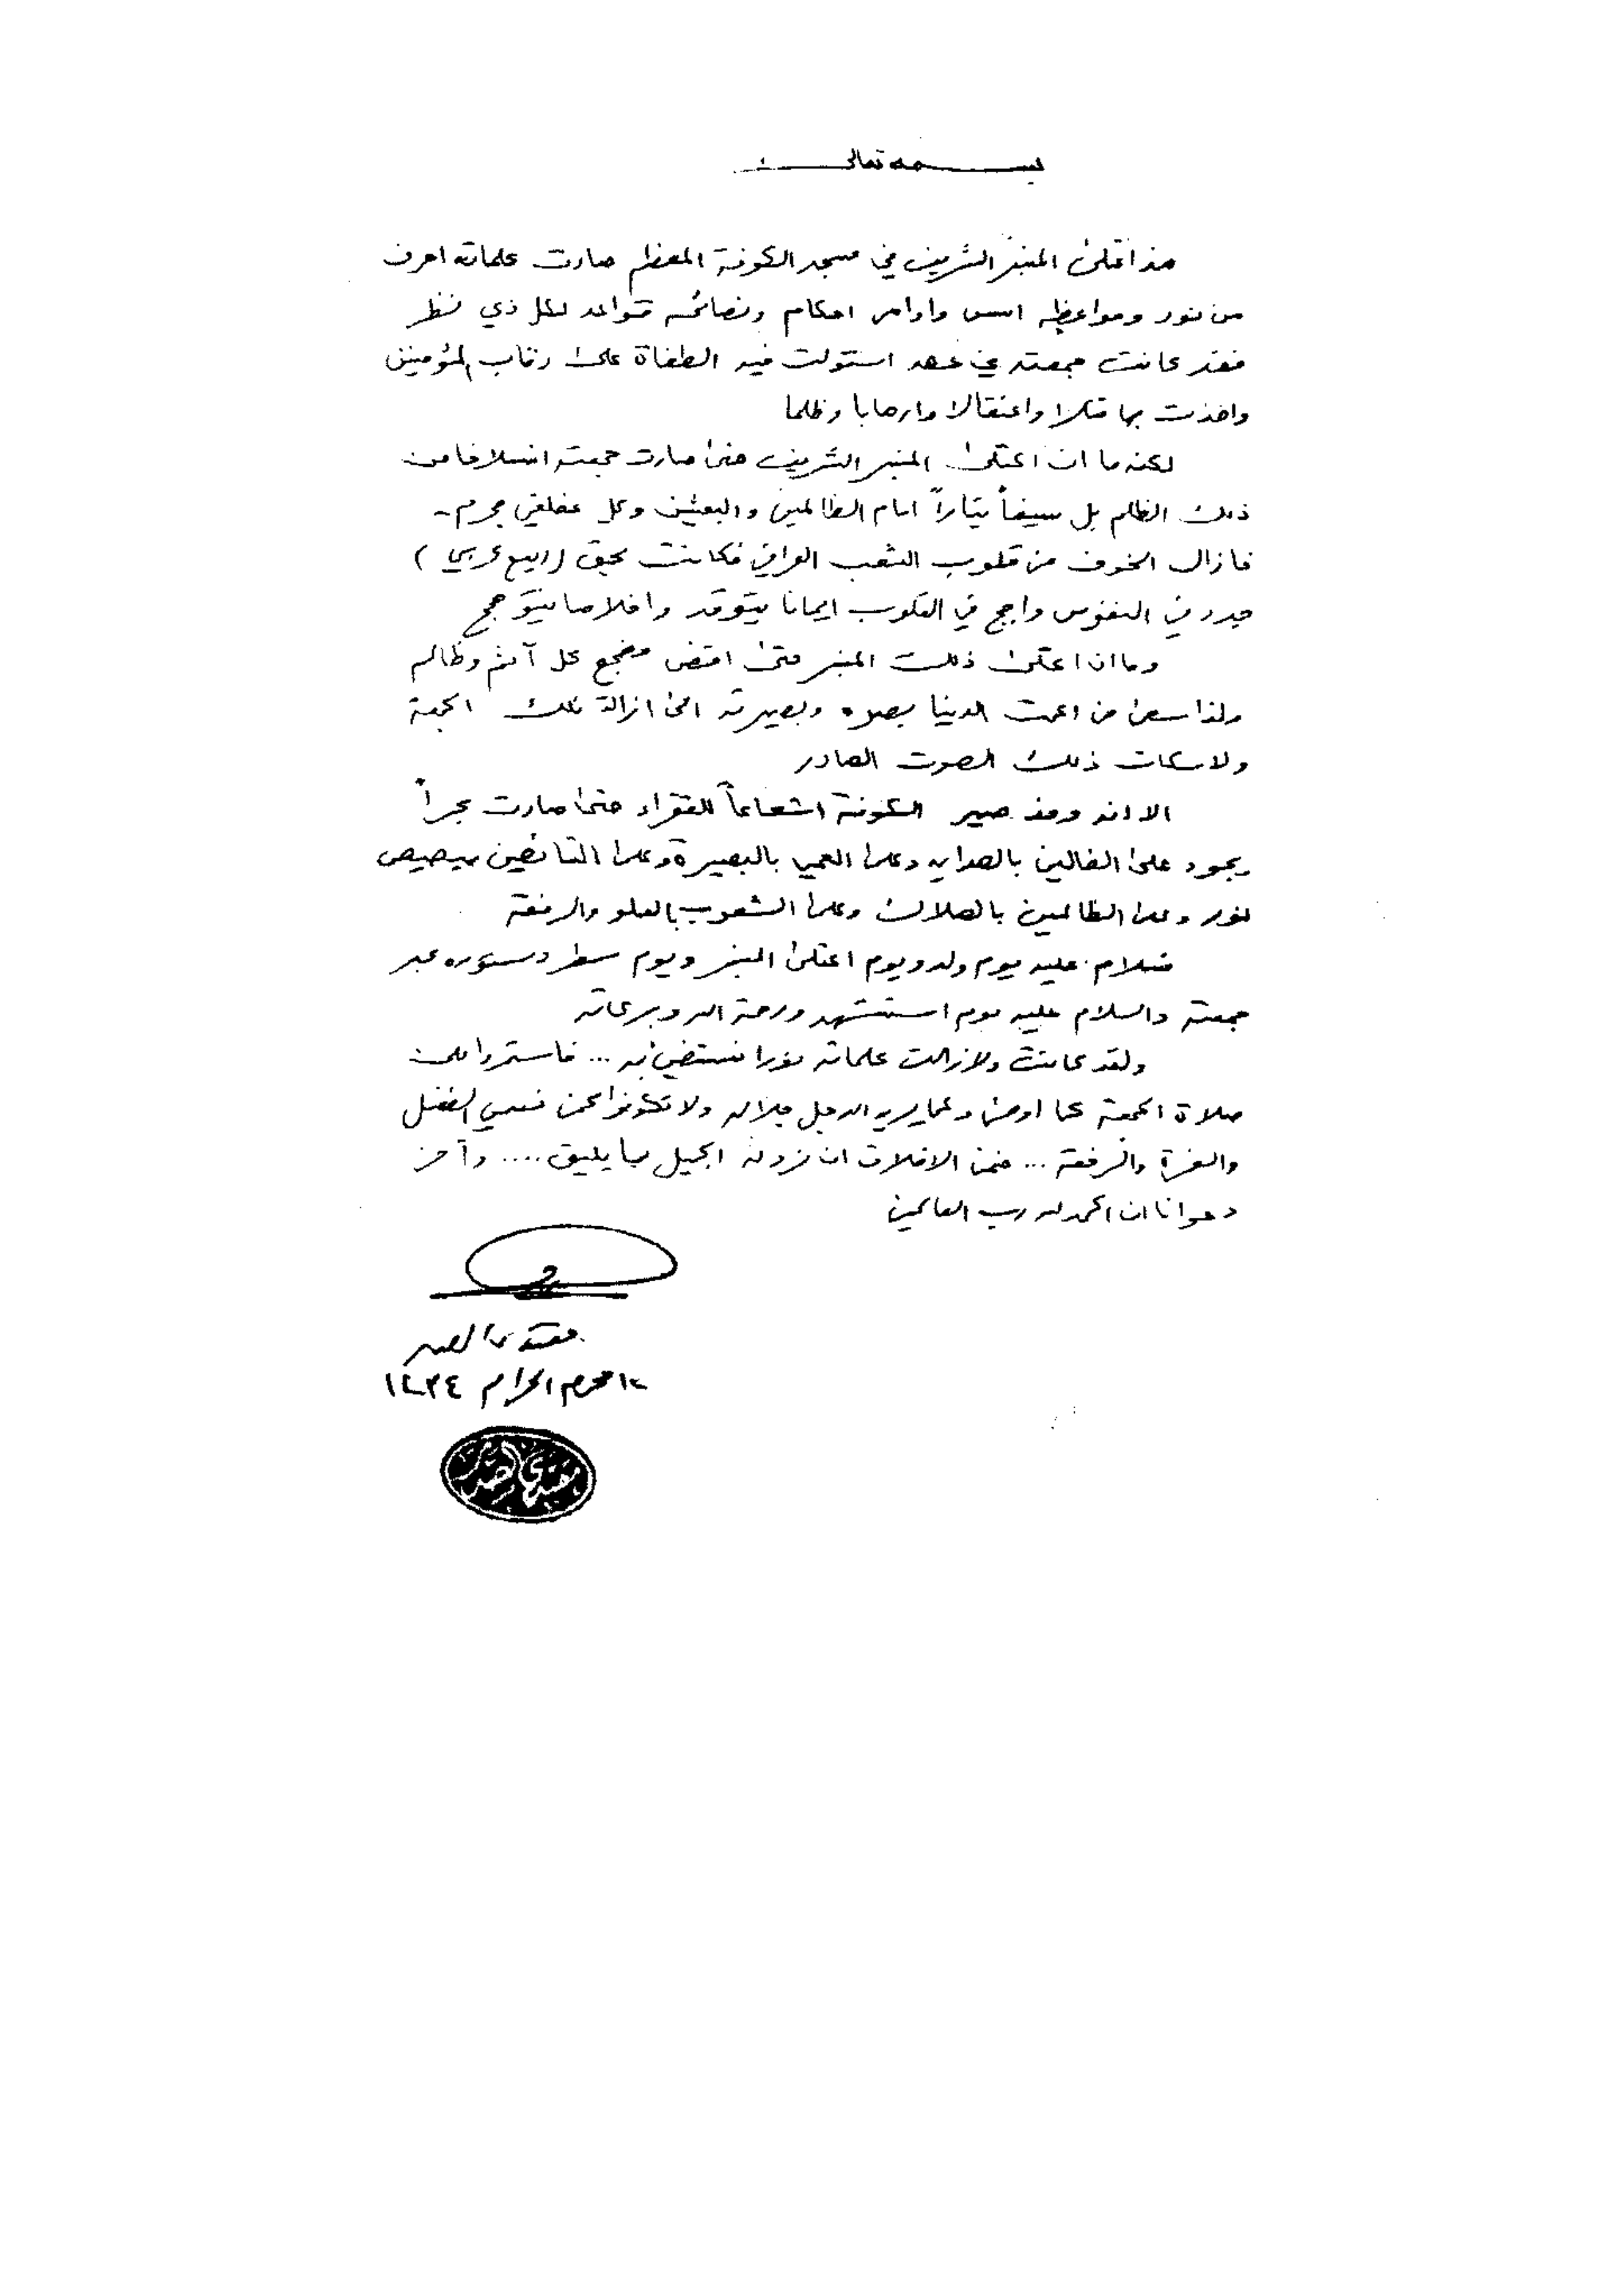 بسمه تعالى
منذ اعتلى المنبر الشريف في مسجد الكوفة المعظم صارت كلماته احرف
من نور ومواعظه اسس واوامر احكام ونصائحه قواعد لكل ذي نظر
فقد كانت جمعته في عهد استولت فيه الطغاة على رقاب المؤمنين
واخذت بها قتلا واعتقالا وارهابا وظلما
لكنه ما ان اعتلى المنبر الشريف حتى صارت جمعته انسلاخا من
ذلك الظلم بل سيفاً بتاراً امام الظالمين والبعثيين وكل عفلقي مجرم
فازال الخوف من قلوب الشعب العراقي فكانت بحق (ربيع عربي)
في النفوس واجج في القلوب ايمانا يتوقد واخلاصا يتوهج
وما ان اعتلى ذلك المنبر حتى اقض مضجع كل آثم وظالم
ولذا سعى من اعمت الدنيا بصره وبصيرته الى ازالة تلك الجمعة
ولاسكات ذلك الصوت الهادر
الا انه ومذ صير الكوفة اشعاعاً للفقراء حتى صارت بحراً
يجود على الضالين بالهداية وعلى العمي بالبصيرة وعلى التائهين ببصيص
نور وعلى الظالمين بالهلاك وعلى الشعوب بالعلو والرفعة
فسلام عليه يوم ولد ويوم اعتلى المنبر ويوم سطر دستوره عبر
جمعته والسلام عليه يوم استشهد ورحمة الله وبركاته
ولقد كانت ولازالت كلماته نورا نستضيء به ... فاستمروا على
صلاة الجمعة كما اوصى وكما يريد الله جل جلاله ولا تكونوا كمن نسي الفضل
والعزة والرفعة ... فمن الاخلاق ان نرد له الجميل بما يليق .... وآخر
دعوانا ان الحمد لله رب العالمين
مقتدى الصدر
١٠ محرم الحرام ١٤٣٤
مقتدى الصدر